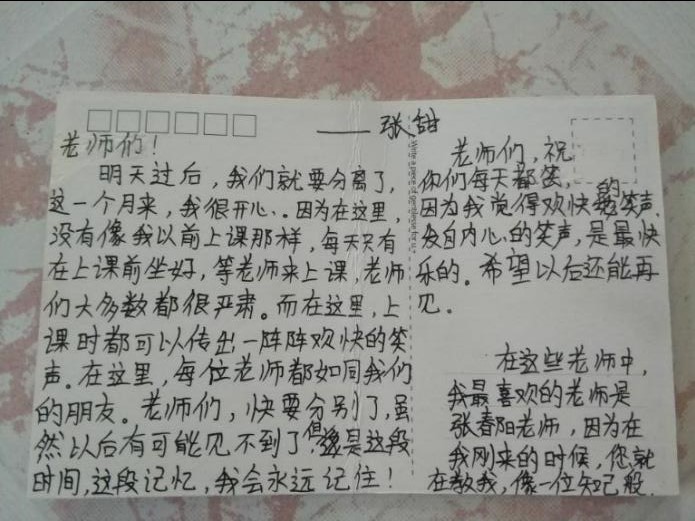 ——张甜
老师们！
明天过后，我们就要分离了，
这一个月来，我很开心.。因为在这里，
没有像我以前上课那样，每天只有
在上课前坐好，等老师来上课，老师
们大多数都很严肃。而在这里，上
课时都可以传出一阵阵欢快的笑
声。在这里，每位老师都如同我们
的朋友。老师们，快要分别了，虽
然以后有可能见不到了，但是这段
时间，这段记忆，我会永远记住！
老师们，祝
你们每天都笑，
因为我觉得欢快的笑声，
发自内心的笑声，是最快
乐的。希望以后还能再
见。
在这些老师中，
我最喜欢的老师是
张春阳老师，因为在
我刚来的时候，您就
在教我，像一位知己般.